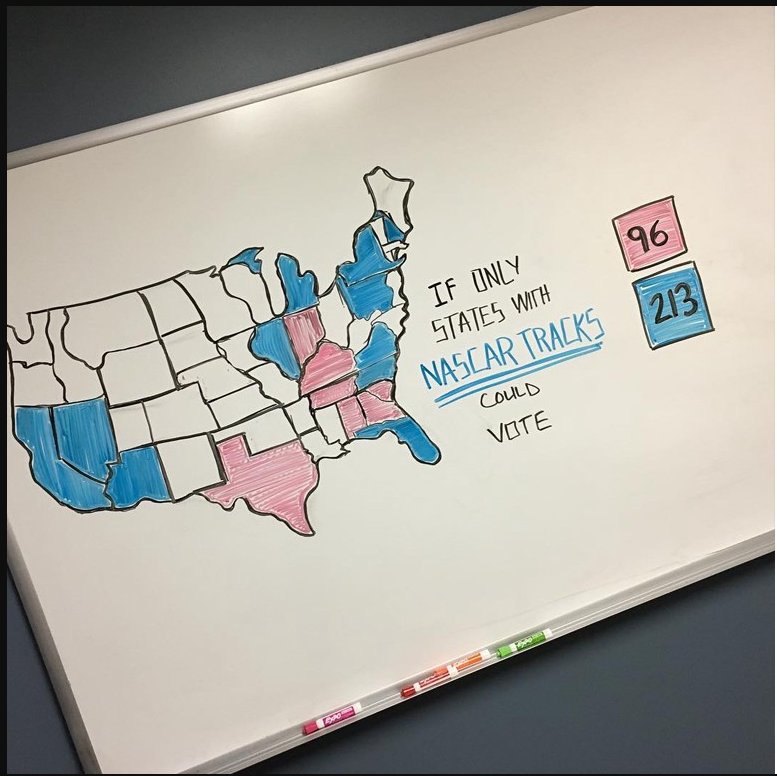 IF ONLY
STATES WITH
NASCAR TRACKS
COULD
VOTE
96
213
EXPO